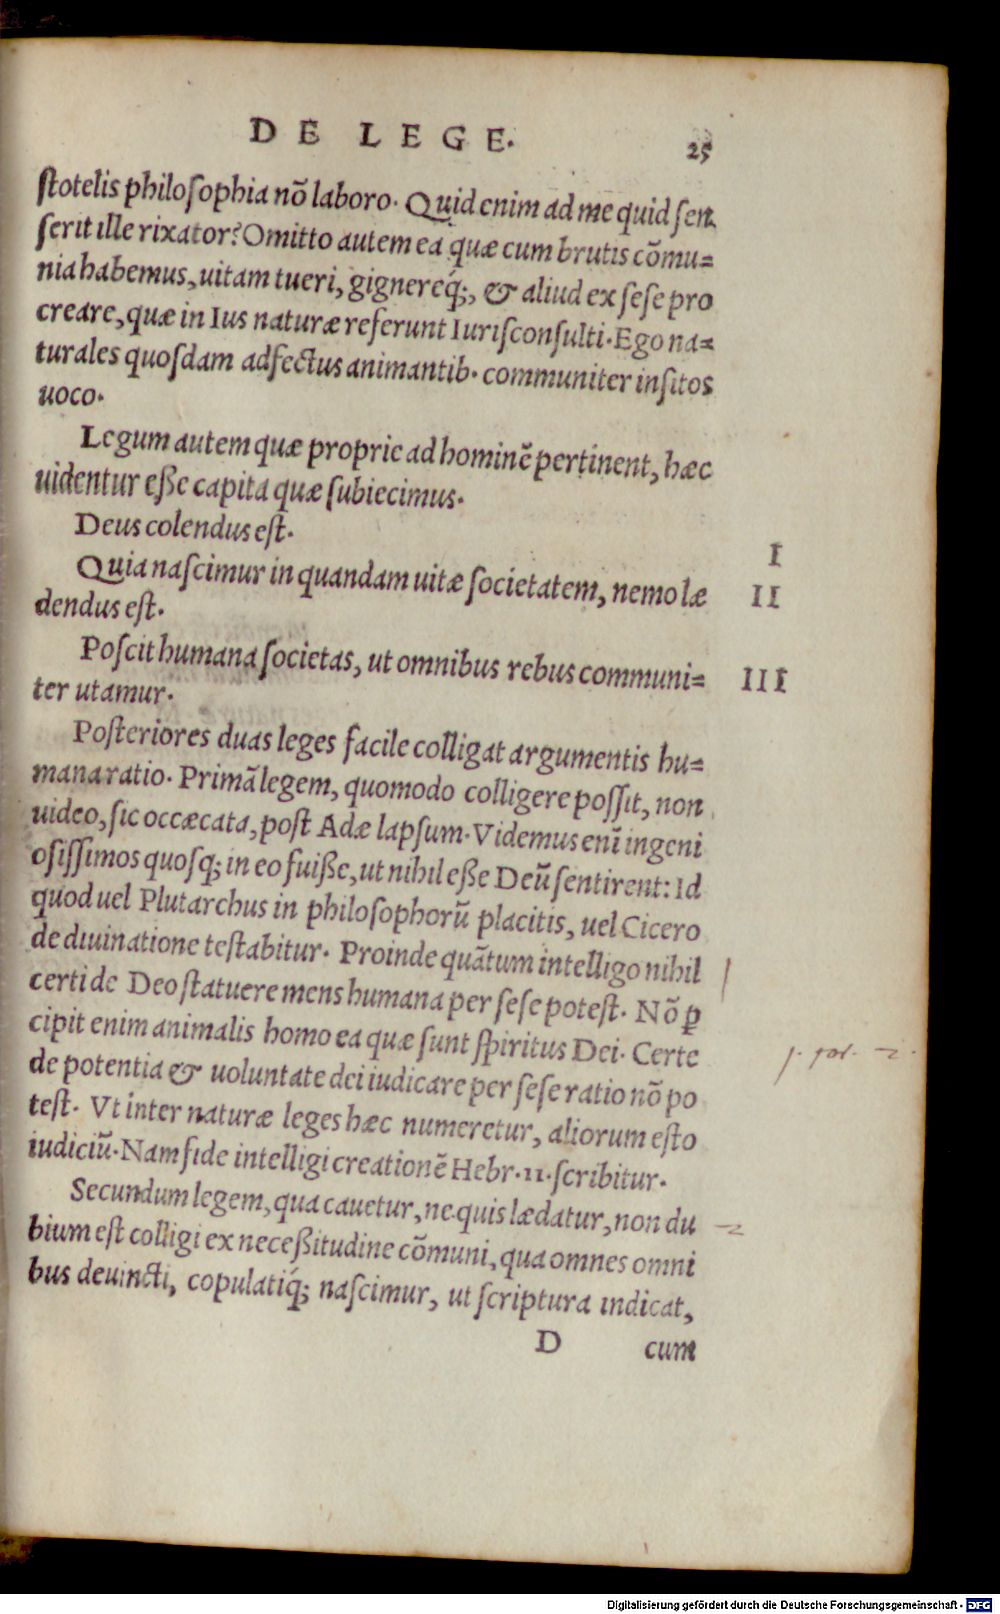 DE LEGE. 25
ſtotelis philoſophia nō laboro. Quid enim ad me quid ſen
ſerit ille rixator? Omitto autem ea quæ cum brutis cōmu=
nia habemus, uitam tueri, gignereq́;, & aliud ex ſeſe pro
creare, quæ in Ius naturæ referunt Iuriſconſulti. Ego na=
turales quoſdam adfectus animantib. communiter inſitos
uoco.
Legum autem quæ proprie ad hominē pertinent, hæc
uidentur eße capita quæ ſubiecimus.
Deus colendus eſt. I
Quia naſcimur in quandam uitæ ſocietatem, nemo læ II
dendus eſt.
Poſcit humana ſocietas, ut omnibus rebus communi= III
ter utamur.
Poſteriores duas leges facile colligat argumentis hu=
mana ratio. Primā legem, quomodo colligere poſſit, non
uideo, ſic occæcata, poſt Adæ lapſum. Videmus enī ingeni
oſiſſimos quoſq; in eo fuiße, ut nihil eße Deū ſentirent: Id
quod uel Plutarchus in philoſophorū placitis, uel Cicero
de diuinatione teſtabitur. Proinde quātum intelligo nihil
certi de Deo ſtatuere mens humana per ſeſe poteſt. Nō ꝑ
cipit enim animalis homo ea quæ ſunt ſpiritus Dei. Certe
de potentia & uoluntate dei iudicare per ſeſe ratio nō po
teſt. Vt inter naturæ leges hæc numeretur, aliorum eſto
iudiciū. Nam fide intelligi creationē Hebr. 11. ſcribitur.
Secundum legem, qua cauetur, ne quis lædatur, non du
bium eſt colligi ex neceßitudine cōmuni, qua omnes omni
bus deuincti, copulatiq́; naſcimur, ut ſcriptura indicat,
D cum
Digitalisierung gefördert durch die Deutsche Forschungsgemeinschaft - DFG